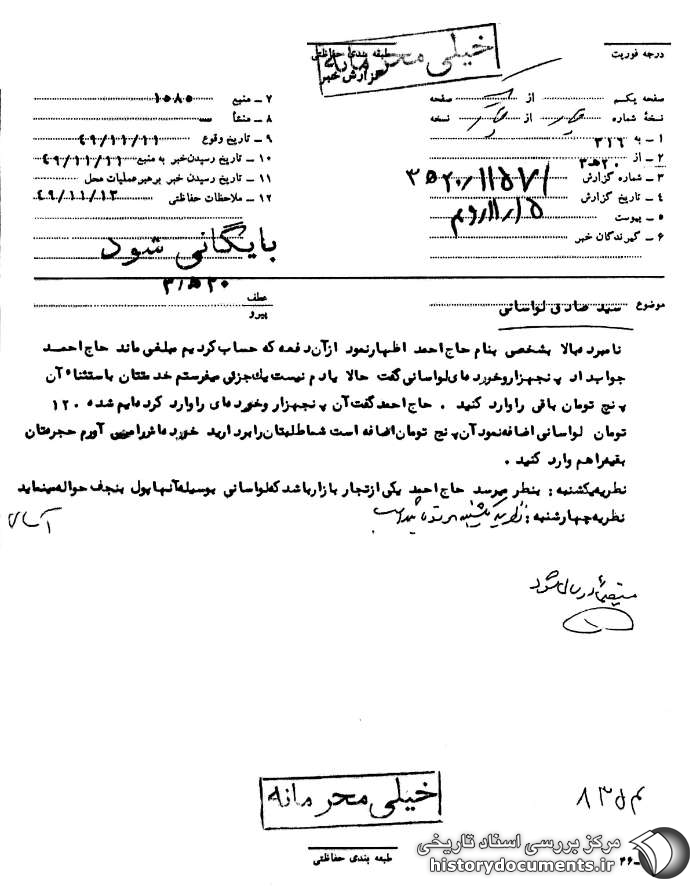 درجه فوریت
طبقه بندی حفاظتی
خیلی محرمانه
گزارش خبر
صفحه یکم از صفحه
نسخهٔ شماره از نسخه
۱ ـ به ۳۱۶
۲ ـ از ۲۰ ﻫ ۳
۳ ـ شماره گزارش ۱۱۵۷۱/۲۰ ﻫ ۳
۴ ـ تاریخ گزارش
۵ ـ پیوست
۶ ـ گیرندگان خبر
۷ ـ منبع ۱۵۸۵
۸ ـ منشأ
۹ ـ تاریخ وقوع ۴۹/۱۱/۱۱
۱۰ ـ تاریخ رسیدن خبر به منبع ۴۹/۱۱/۱۱
۱۱ ـ تاریخ رسیدن خبر برهبر عملیات محل
۱۲ ـ ملاحظات حفاظتی ۴۹/۱۱/۱۳
بایگانی شود
موضوع سید صادق لواسانی
عطف
پیرو
نامبرده بالا بشخصی بنام حاج احمد اظهار نمود از آن دفعه که حساب کردیم مبلغی ماند حاج احمد
جواب داد پنجهزار و خورده‌ای لواسانی گفت حالا یادم نیست یک جزئی میفرستم خدمتتان باستثناء آن
پنج تومان باقی را وارد کنید . حاج احمد گفت آن پنجهزار و خورده‌ای را وارد کرده‌ایم شده ۱۲۰
تومان لواسانی اضافه نمود آن پنج تومان اضافه است شما طلبتان را بردارید خورده‌اش را می آورم حجره‌تان
بقیه را هم وارد کنید .
نظریه یکشنبه : بنظر میرسد حاج احمد یکی از تجار بازار باشد که لواسانی بوسیله آنها پول بنجف حواله مینماید
نظریه چهارشنبه : نظریه یکشنبه مورد تائید است
خیلی محرمانه
طبقه بندی حفاظتی
مرکز بررسی اسناد تاریخی
historydocuments.ir